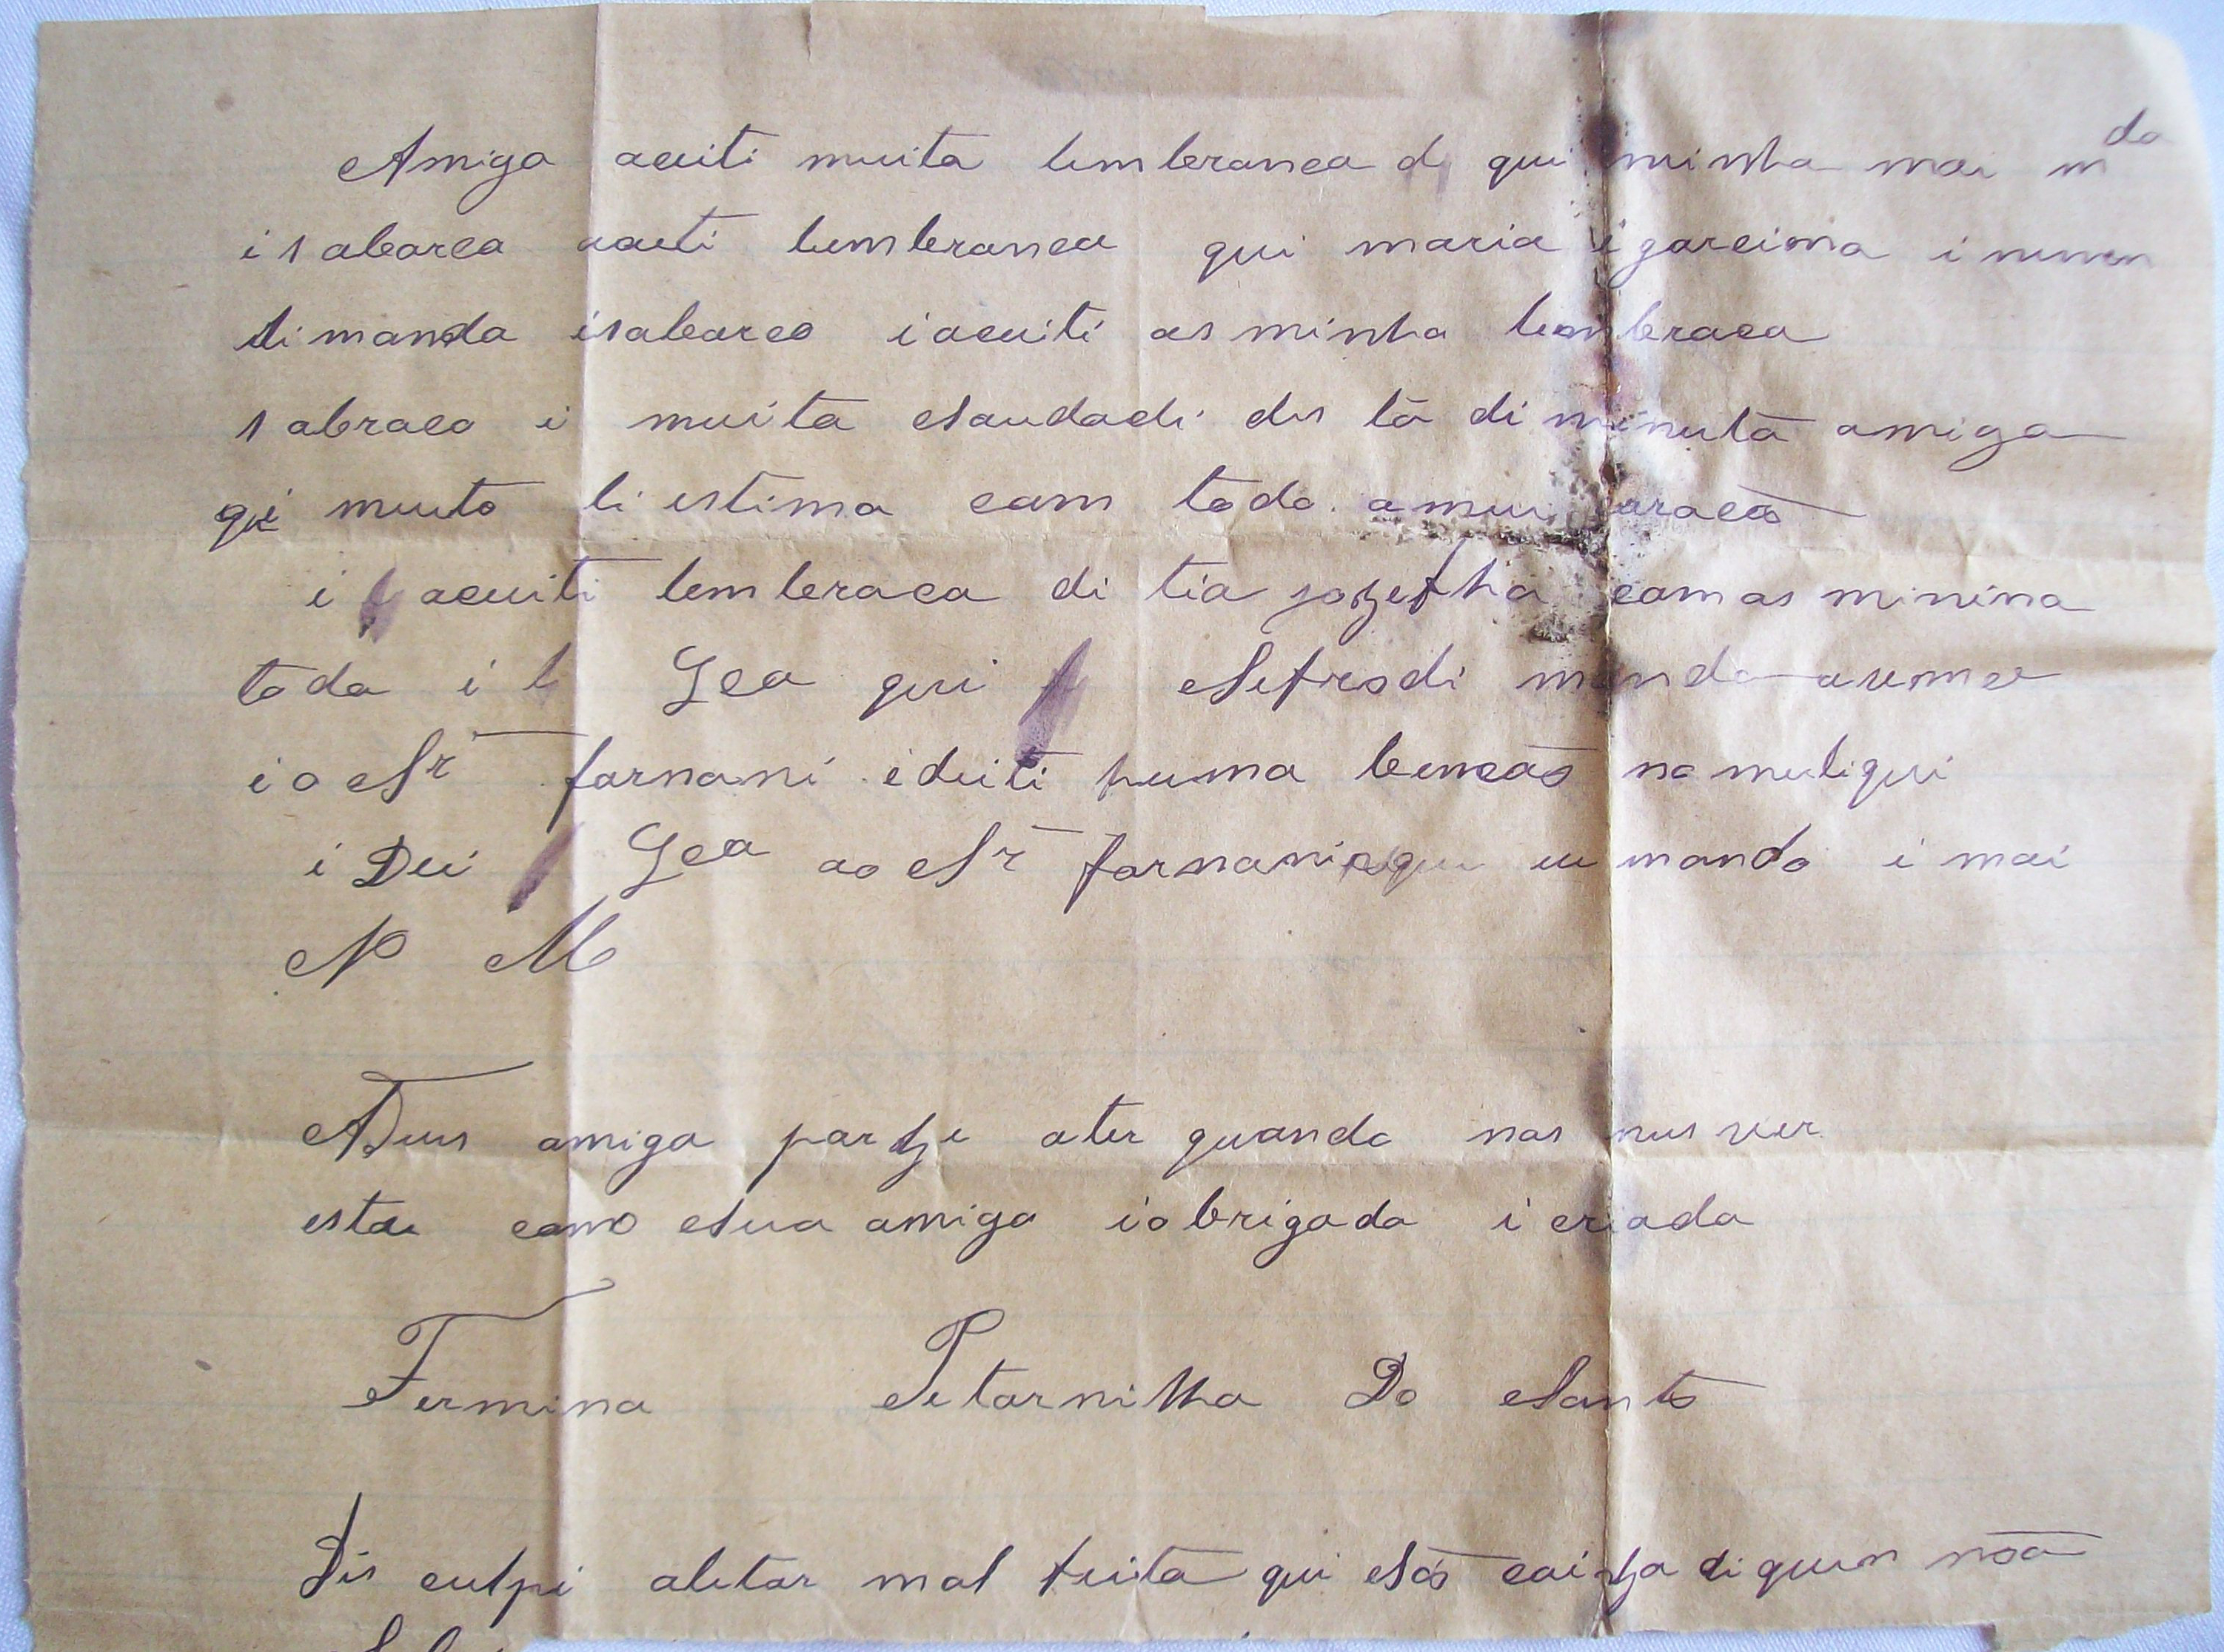 Amiga aceiti muita lembranca di qui minha mai m da
i sabarco aceiti lembranca qui maria i garcima i nenen
ti manda isabarco i aceiti as minha lembraca
s abraco i muita Saudadi des ta di minuta amiga
qui muito ti estima com todo a meu coracão
i aceiti lembraca di tia jozepha com as minina
toda i Gea qui Sefrodi manda
i o Sr farnani i deiti huma bencão no muliqui
i Dei Gea ao Sr farnani qui eu mando i mai
N M
ADeus amiga part e ater quando nos nus ver
estae como Sua amiga i obrigada i criada
Fermina Petarnilha Do Santo
Dis culpi aletar mal feita qui São coi za di quem não